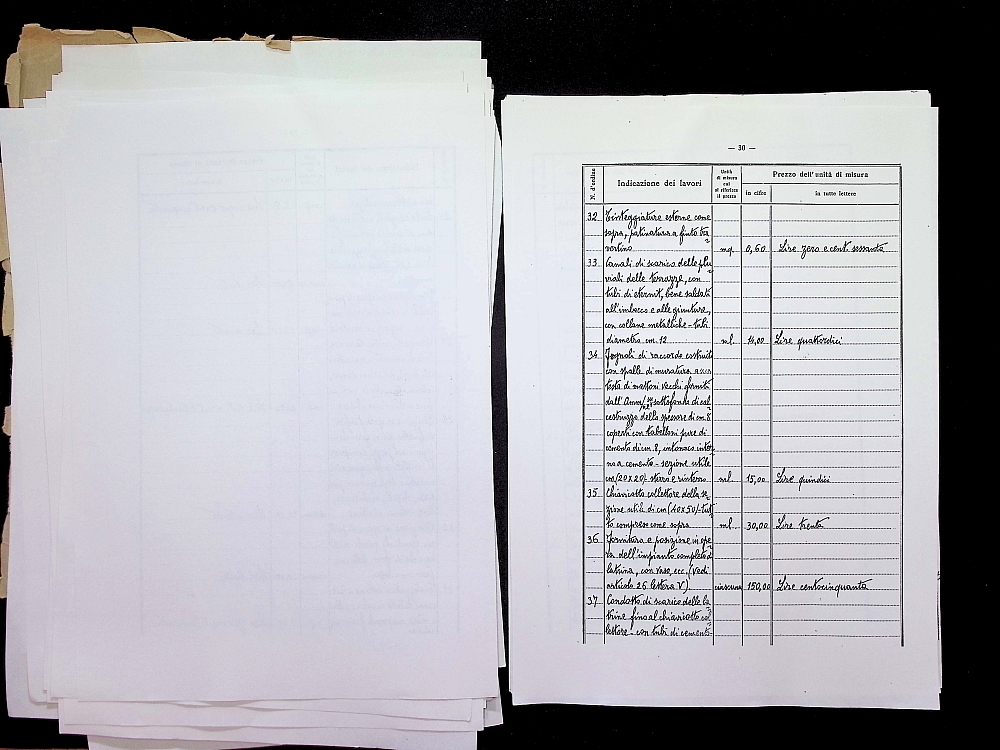 — 30 —
N. d'ordine
Indicazione dei lavori
Unità
di misura
cui
si riferisce
il prezzo
Prezzo dell'unità di misura
in cifre
in tutte lettere
32 Tinteggiature esterne come
sopra, patinatura a finto tra=
vertino mq. 0,60 Lire zero e cent. sessanta
33 Canali di scarico delle plu=
viali delle terrazze, con
tubi di eternit, bene saldati
all'imbocco e alle giunture,
con collane metalliche - tubi
diametro cm. 12 ml. 14,00 Lire quattordici
34 Fognoli di raccordo costruiti
con spalle di muratura a una
testa di mattoni vecchi forniti
dall'Amm/ne sottofondo di cal=
cestruzzo dello spessore di cm 8
coperti con tabelloni pure di
cemento di cm. 8, intonaco inter=
no a cemento - sezione utile
cm (20x20) - sterro e rinterro ml. 15,00 Lire quindici
35 Chiavicotto collettore della se=
zione utile di cm (40x50) - tut=
to compreso come sopra ml 30,00 Lire trenta
36 Fornitura e posizione in ope=
ra dell'impianto completo di
latrina, con vaso, ecc. (Vedi
articolo 26 lettera V) ciascuno 150,00 Lire centocinquanta
37 Condotto di scarico delle la=
trine fino al chiavicotto col=
lettore - con tubi di cemento